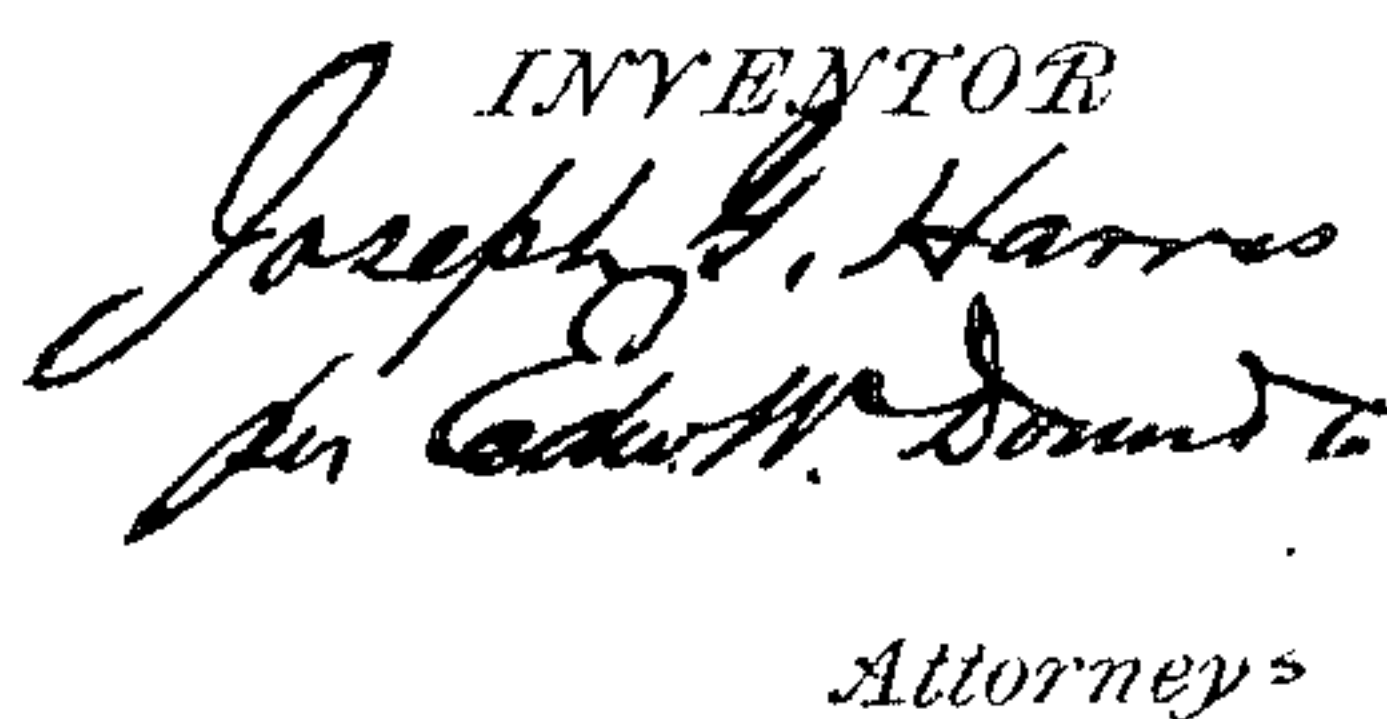 INVENTOR
Joseph G. Harris
per Edw. W. Donn &
Attorneys